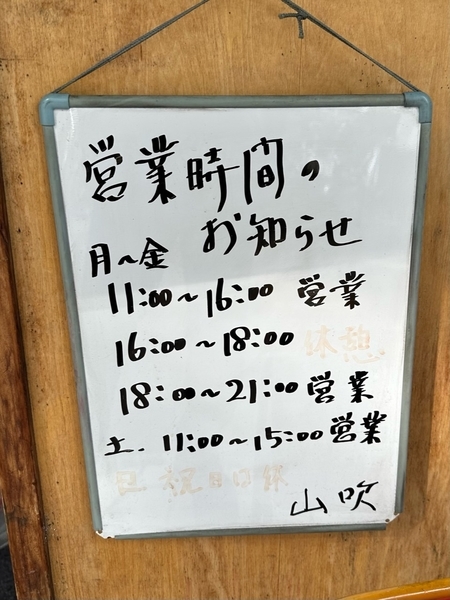 営業時間の
お知らせ
月〜金
11:00〜16:00 営業
16:00〜18:00 休憩
18:00〜21:00 営業
土. 11:00〜15:00 営業
日. 祝日
山吹